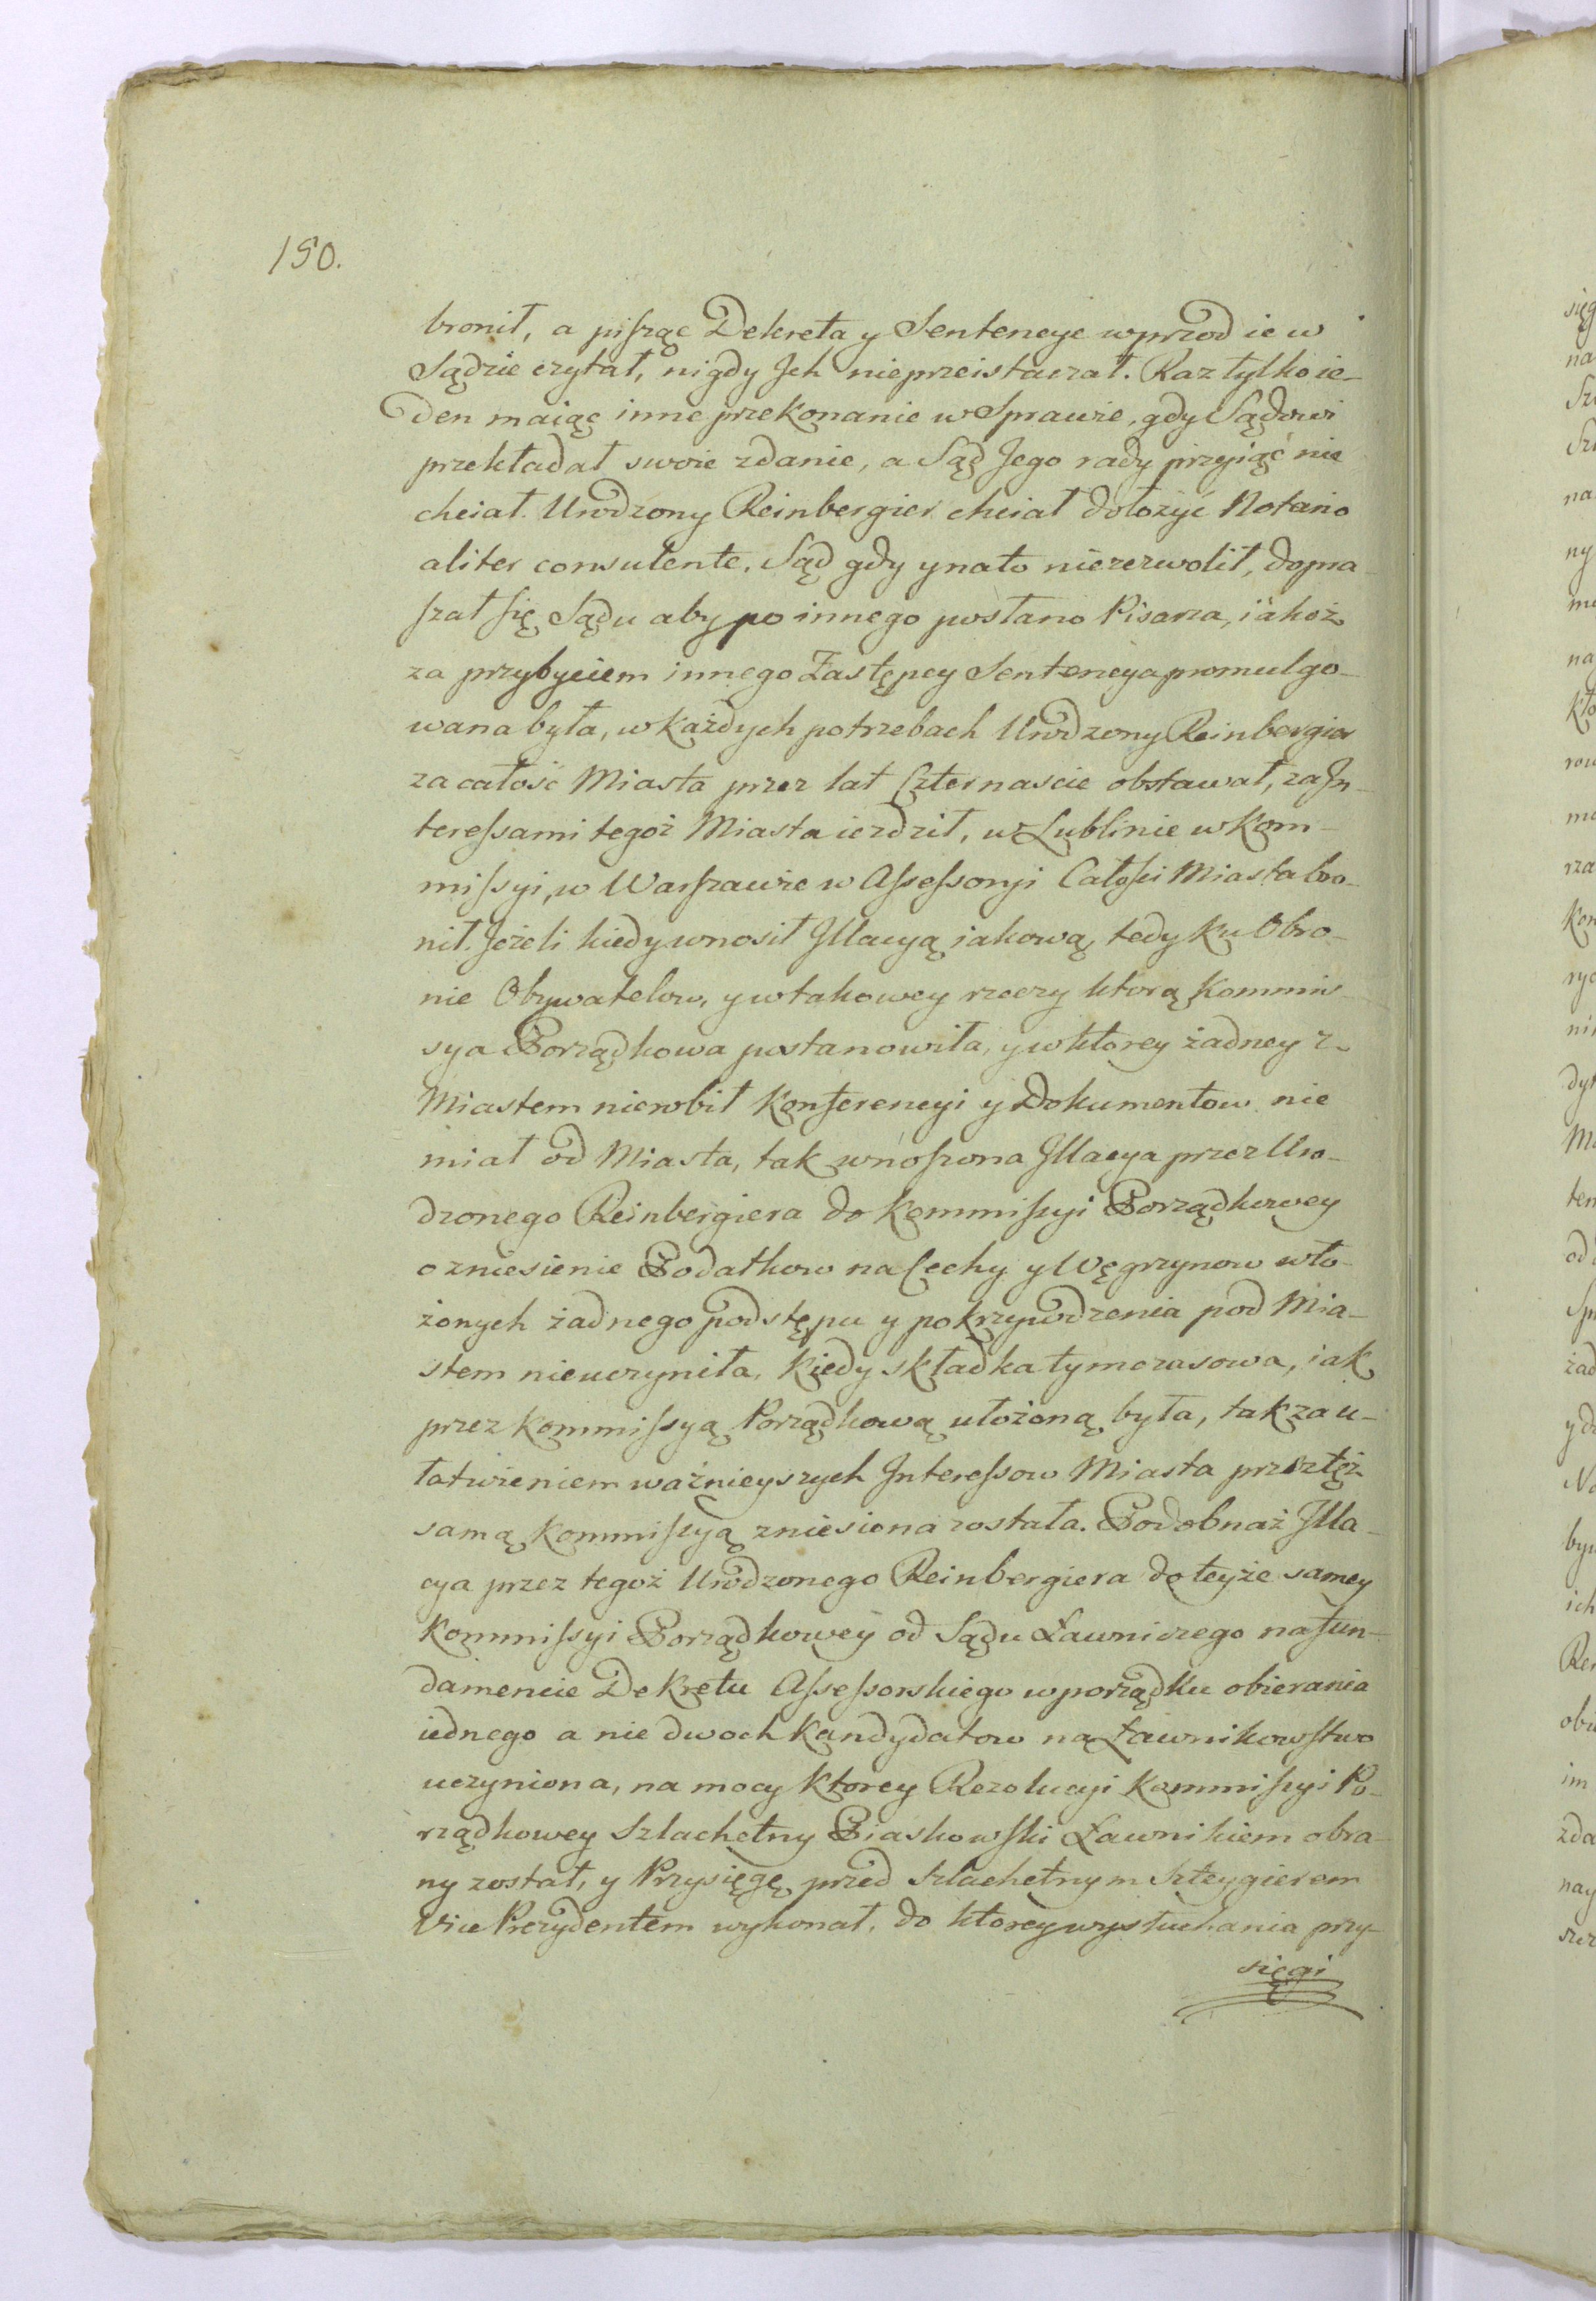 150.
bronił, a piſząc Dekreta y Sentencye wprzod ie w
Sądzie czytał, nigdy Jch nieprzeistaczał. Raz tylko ie-
den maiąc inne przekonanie w Sprawie, gdy Sądowi
przekładał swoie zdanie, a Sąd Jego rady przyiąć nie
chciał. Urodzony Reinbergier chciał dołożyć Notario
aliter consulente. Sąd gdy ynato niezezwolił, dopra-
szał ſię Sądu aby po innego posłano Pisarza, iakoż
za przybyciem innego Zastępcy Sentencya promulgo-
wana była, w każdych potrzebach Urodzony Reinbergier
za całość Miasta przez lat Czternascie obstawał, za Jn-
tereſsami tegoż Miasta iezdził, w Lublinie w Kom-
miſsyi, w Warſzawie w Aſseſsoryi Całości Miasta bro-
nił. Jeżeli kiedy wnosił Jllacyą iakową, tedy ku Obro-
nie Obywatelow, y w takowey rzeczy ktorą Kommis-
sya Porządkowa postanowiła, y w ktorey żadney z
Miastem nierobił Konferencyi y Dokumentow nie
miał od Miasta, tak wnoszona Jllacya przez Uro-
dzonego Reinbergiera do Kommiſsyi Porządkowey
o zniesienie Podatkow na Cechy y Węgrzynow wło-
żonych żadnego podstępu y pokrzywdzenia pod Mia-
stem nieuczyniła, kiedy składka tymczasowa, iak
przez Kommiſsyą Porządkową ułożoną była, tak za u-
łatwieniem ważnieyszych Jntereſsow Miasta przez też
samą Kommiſsyą zniesiona została. Podobnaż Jlla-
cya przez tegoż Urodzonego Reinbergiera do teyże samey
Kommiſsyi Porządkowey od Sądu Ławniczego na fun-
damencie Dekretu Aſseſsorskiego w porządku obierania
iednego a nie dwoch Kandydatow na Ławnikowſtwo
uczyniona, na mocy ktorey Rezolucyi Kommiſsyi Po-
rządkowey Szlachetny Piaskowſki Ławnikiem obra-
ny został, y Przysięgę przed Szlachetnym Szteygierem
Vice Prezydentem wykonał, do ktorey wysłuchania przy-
sięgi